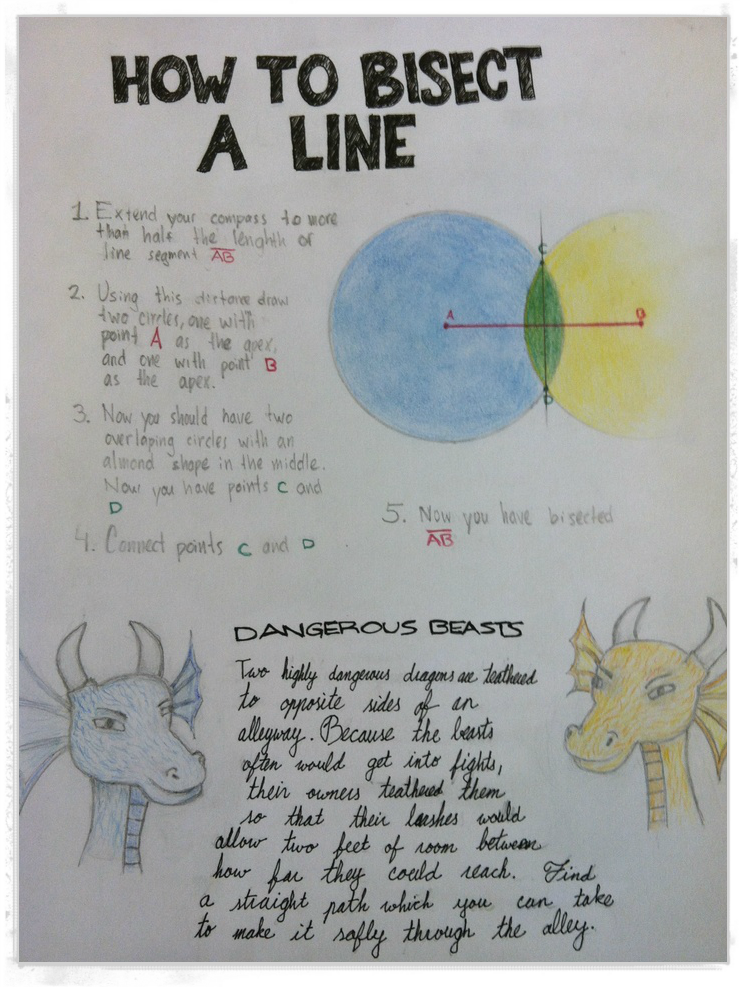 HOW TO BISECT
A LINE
1. Extend your compass to more
than half the lenghth of
line segment AB
2. Using this distance draw
two circles, one with
point A as the apex,
and one with point B
as the apex.
3. Now you should have two
overlaping circles with an
almond shape in the middle.
Now you have points C and
D
4. Connect points C and D
A
B
C
D
5. Now you have bisected
AB
DANGEROUS BEASTS
Two highly dangerous dragons are teathered
to opposite sides of an
alleyway. Because the beasts
often would get into fights,
their owners teathered them
so that their leashes would
allow two feet of room between
how far they could reach. Find
a straight path which you can take
to make it safly through the alley.